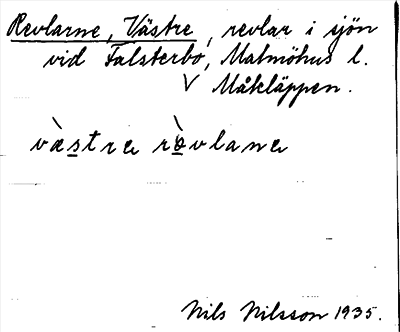 Revlarne, Västre, revlar i sjön
vid Falsterbo, Malmöhus l.
V Måkläppen.
væ̀stre rə̀vlane
Nils Nilsson 1935.